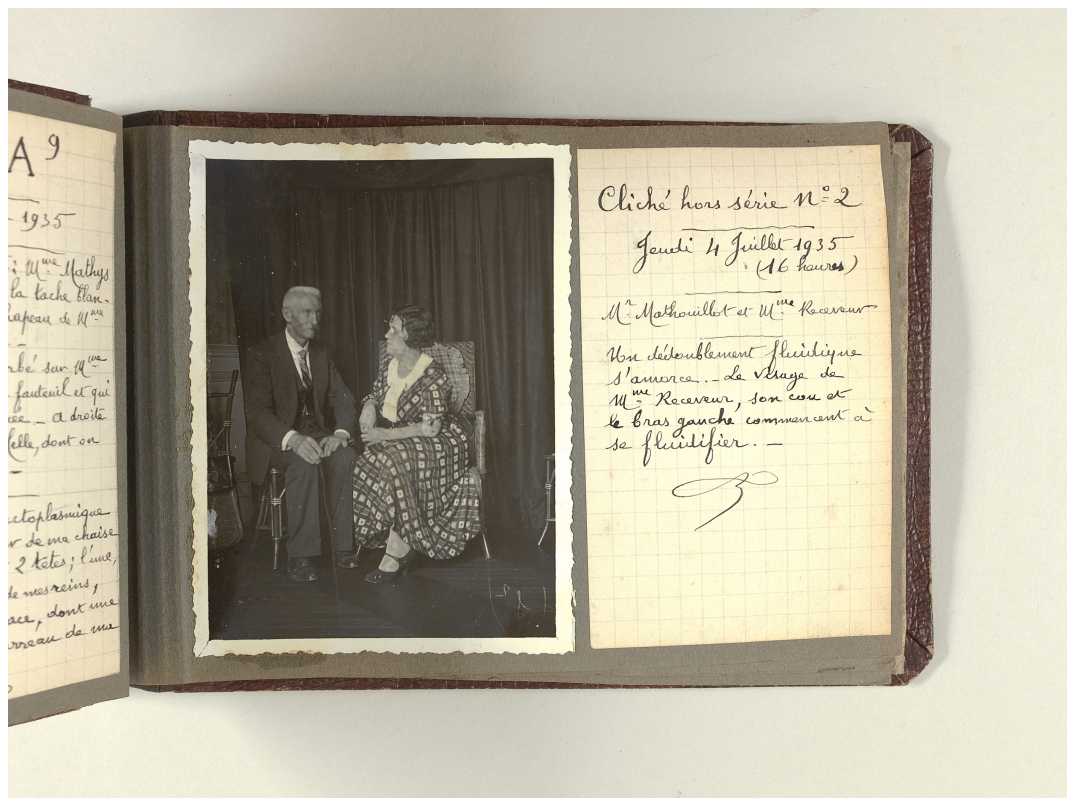 A9
- 1935
: Mme Mathys
la tache blan-
hapeau de Mme
rbé sur Mme
fauteuil et qui
ee - a droite
elle, dont on
ctoplasmique
r de ma chaise
2 têtes; l'une,
de mes reins,
ace, dont une
rreau de ma
Cliché hors série No 2
Jeudi 4 Juillet 1935
(16 heures)
Mr Mathouillot et Mme Receveur
Un dédoublement fluidique
s'amorce. - Le visage de
Mme Receveur, son cou et
le bras gauche commencent à
se fluidifier. -